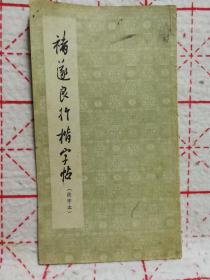 褚遂良行楷字帖
（放大本）